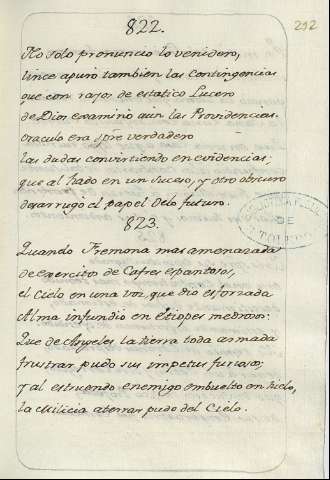 822.
292
No solo pronuncio lo venidero,
lince apuró tambien las Contingencias
que con rayos de estatico Lucero
de Dios examinó aun las Providencias.
Oraculo era spre verdadero
las dudas convirtiendo en evidencias;
que al hado en un suceso, y otro obscuro
desarrugó el papel delo futuro.
823.
Quando Fremona mas amenazada
de exercitos de Cafres espantosos,
el Cielo en una voz, que dió esforzada
Alma infundió en Etiopes medrosos:
Que de Angeles la tierra toda armada
frustrar pudo sus impetus furiosos;
y al estruendo enemigo embuelto en hielo,
la Milicia aterrar pudo del Cielo.
DE
TOLEDO